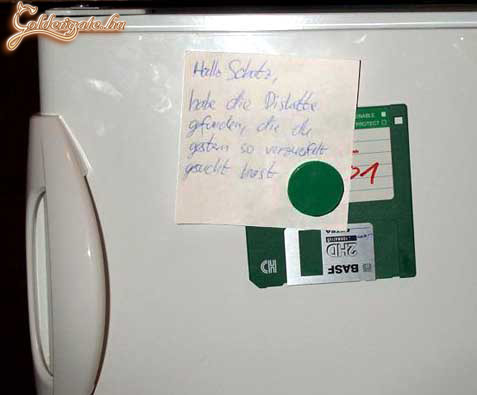 Goldengate.hu
Hallo Schatz,
habe die Diskette
gefunden, die du
gestern so verzweifelt
gesucht hast
ENABLE
PROTECT
1
BASF
2HD
EXTRA